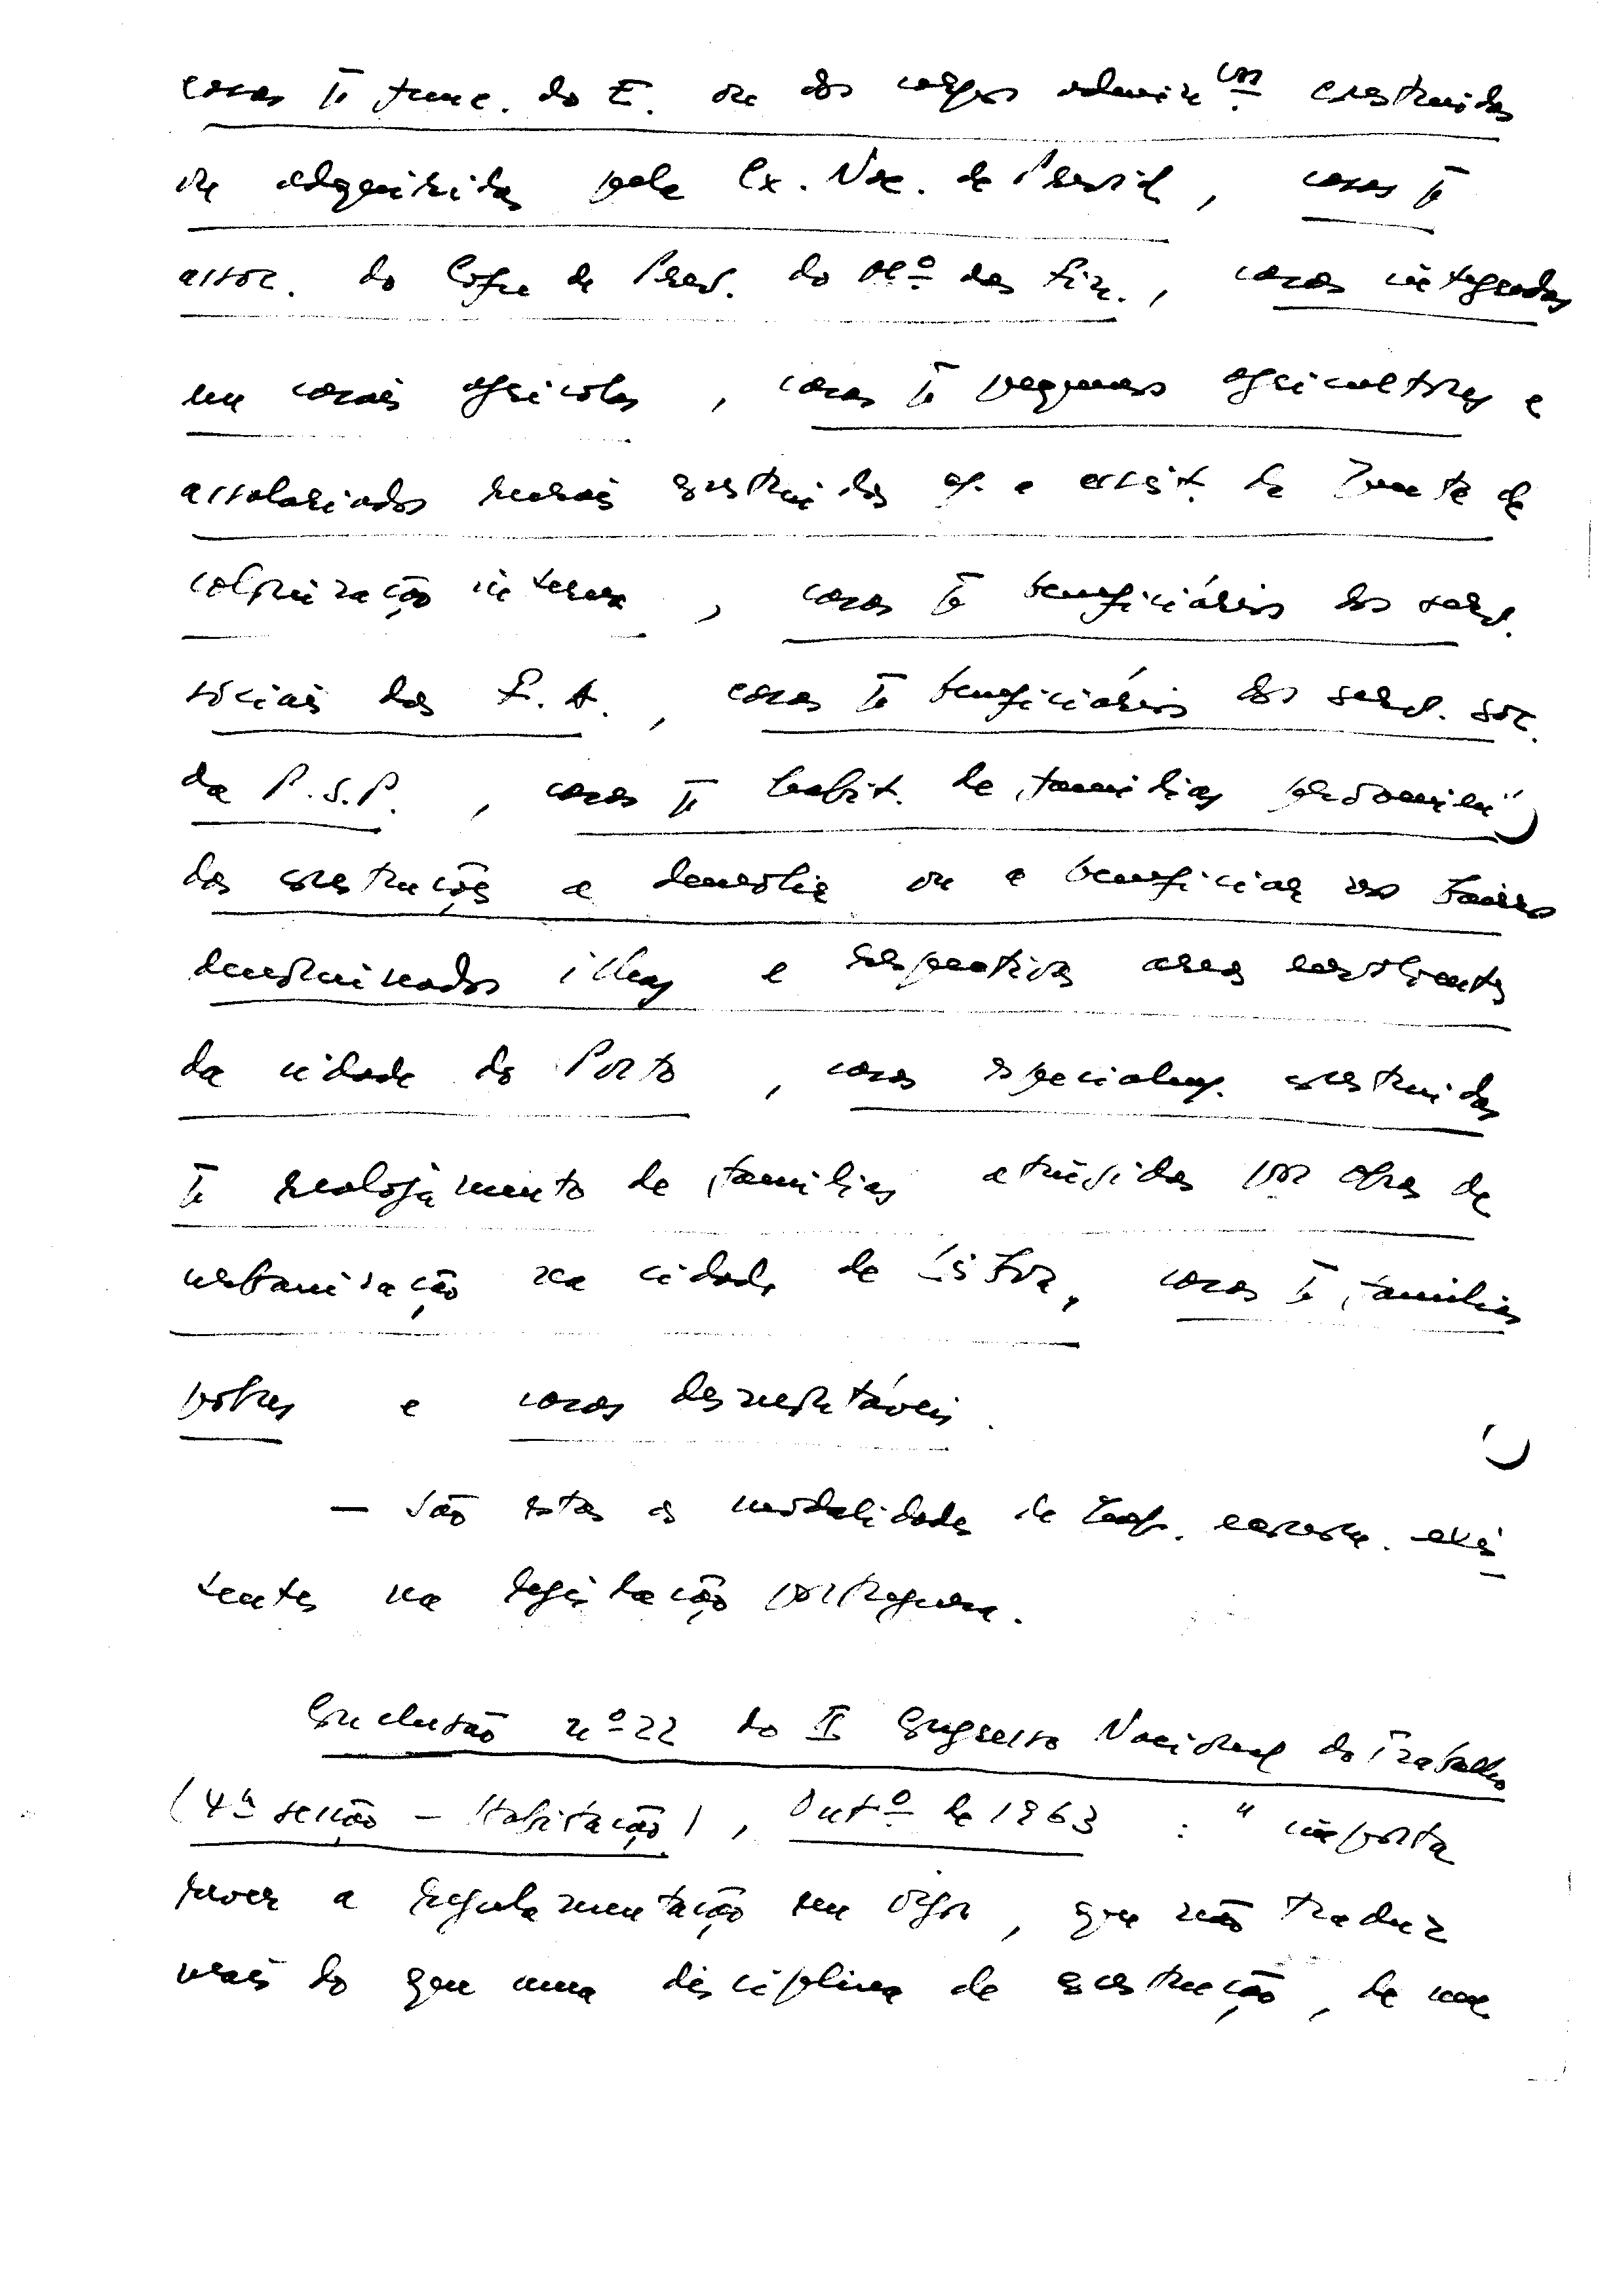 casas p. func. do E. ou dos corpos administ. construídas
ou adquiridas pela Cx. Nac. de Previd., casas p.
assoc. do Cofre de Prev. do Mº das Fin., casas integradas
em casais agrícolas, casas p. pequenos agricultores e
assalariados rurais construídas c. a assist. da Junta de
colonização interna, casas p. beneficiários dos serv.
sociais das F. A., casas p. beneficiários dos serv. soc.
da P.S.P., casas p. habit. de famílias
das construções a demolir ou a beneficiar nos bairros
denominados ilhas e respectivas áreas envolventes
da cidade do Porto, casas especialm. construídas
p. realojamento de famílias atingidas por obras de
urbanização na cidade de Lisboa, casas p. famílias
pobres e casas desmontáveis.
— São estas as modalidades de exis
tentes na legislação portuguesa.
Conclusão nº 22 do II Congresso Nacional do Trabalho
(4ª secção – Habitação), Outº de 1963 : " importa
rever a regulamentação em vigor, que não traduz
mais do que uma disciplina de construção, de